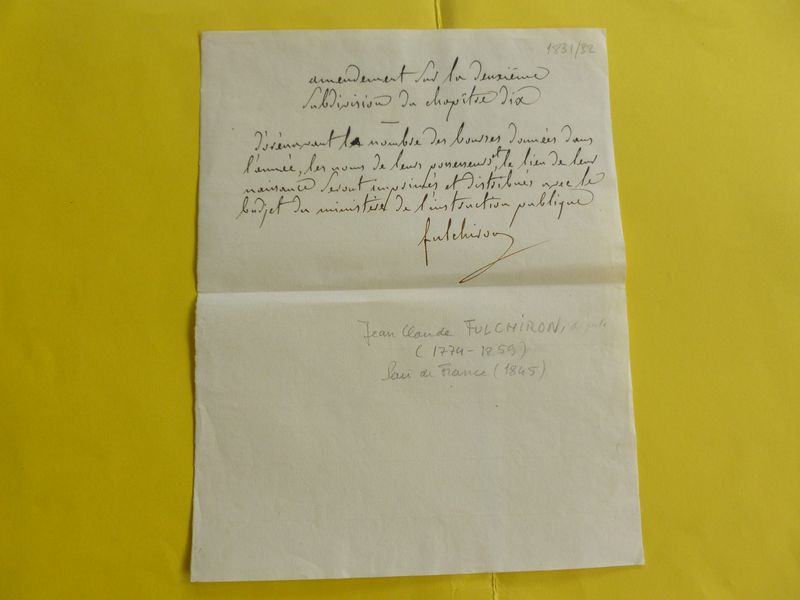 1831/32
amendement sur la deuxième
subdivision du chapître dix
dorénavant le nombre des bourses données dans
l'année, les noms de leurs possesseurs et le lieu de leur
naissance seront imprimés et distribués avec le
budjet du ministère de l'instruction publique
fulchiron
Jean Claude FULCHIRON, député
(1774-1859)
Pair de France (1845)